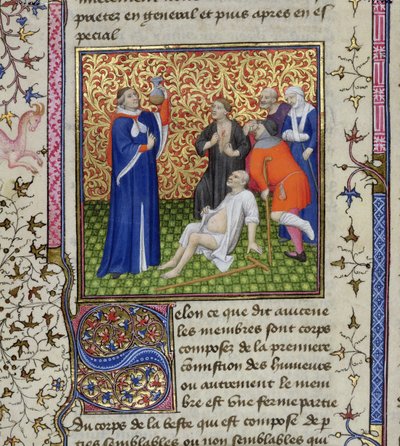 prietez en general et puis apres en es
pecial
Selon ce que dit auicene
les membres sont corps
composez de la premiere
conmistion des humeurs
ou autrement le mem
bre est une ferme partie
du corps de la beste qui est compose de p
ties semblables ou non semblables